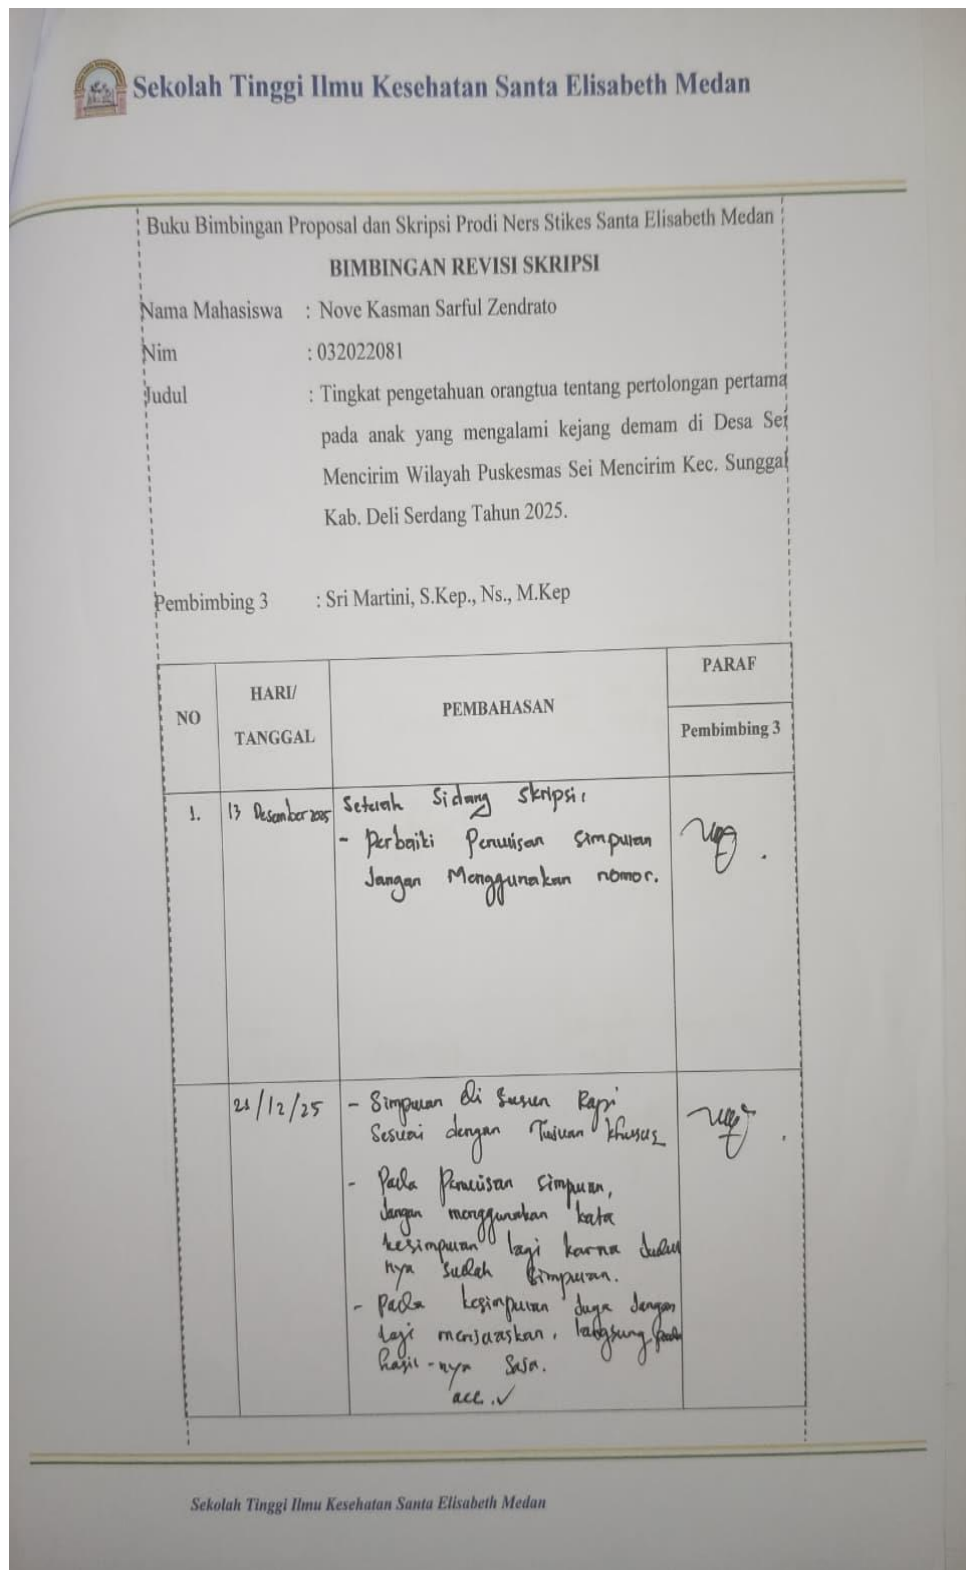 Sekolah Tinggi Ilmu Kesehatan Santa Elisabeth Medan
Buku Bimbingan Proposal dan Skripsi Prodi Ners Stikes Santa Elisabeth Medan
BIMBINGAN REVISI SKRIPSI
Nama Mahasiswa : Nove Kasman Sarful Zendrato
Nim : 032022081
Judul : Tingkat pengetahuan orangtua tentang pertolongan pertama
pada anak yang mengalami kejang demam di Desa Sei
Mencirim Wilayah Puskesmas Sei Mencirim Kec. Sunggal
Kab. Deli Serdang Tahun 2025.
Pembimbing 3 : Sri Martini, S.Kep., Ns., M.Kep
NO HARI/ TANGGAL PEMBAHASAN PARAF
Pembimbing 3
1. 13 Desember 2025 Setelah Sidang Skripsi:
- Perbaiki Penulisan Simpulan
Jangan Menggunakan nomor.
/12/25 - Simpulan di Susun Rapi
Sesuai dengan Tujuan khusus
- Pada Penulisan Simpulan,
Jangan menggunakan kata
kesimpulan lagi karna Judul
nya sudah Simpulan.
- Pada kesimpulan juga Jangan
lagi menjelaskan, langsung pada
hasil-nya Saja.
acc.✓
Sekolah Tinggi Ilmu Kesehatan Santa Elisabeth Medan